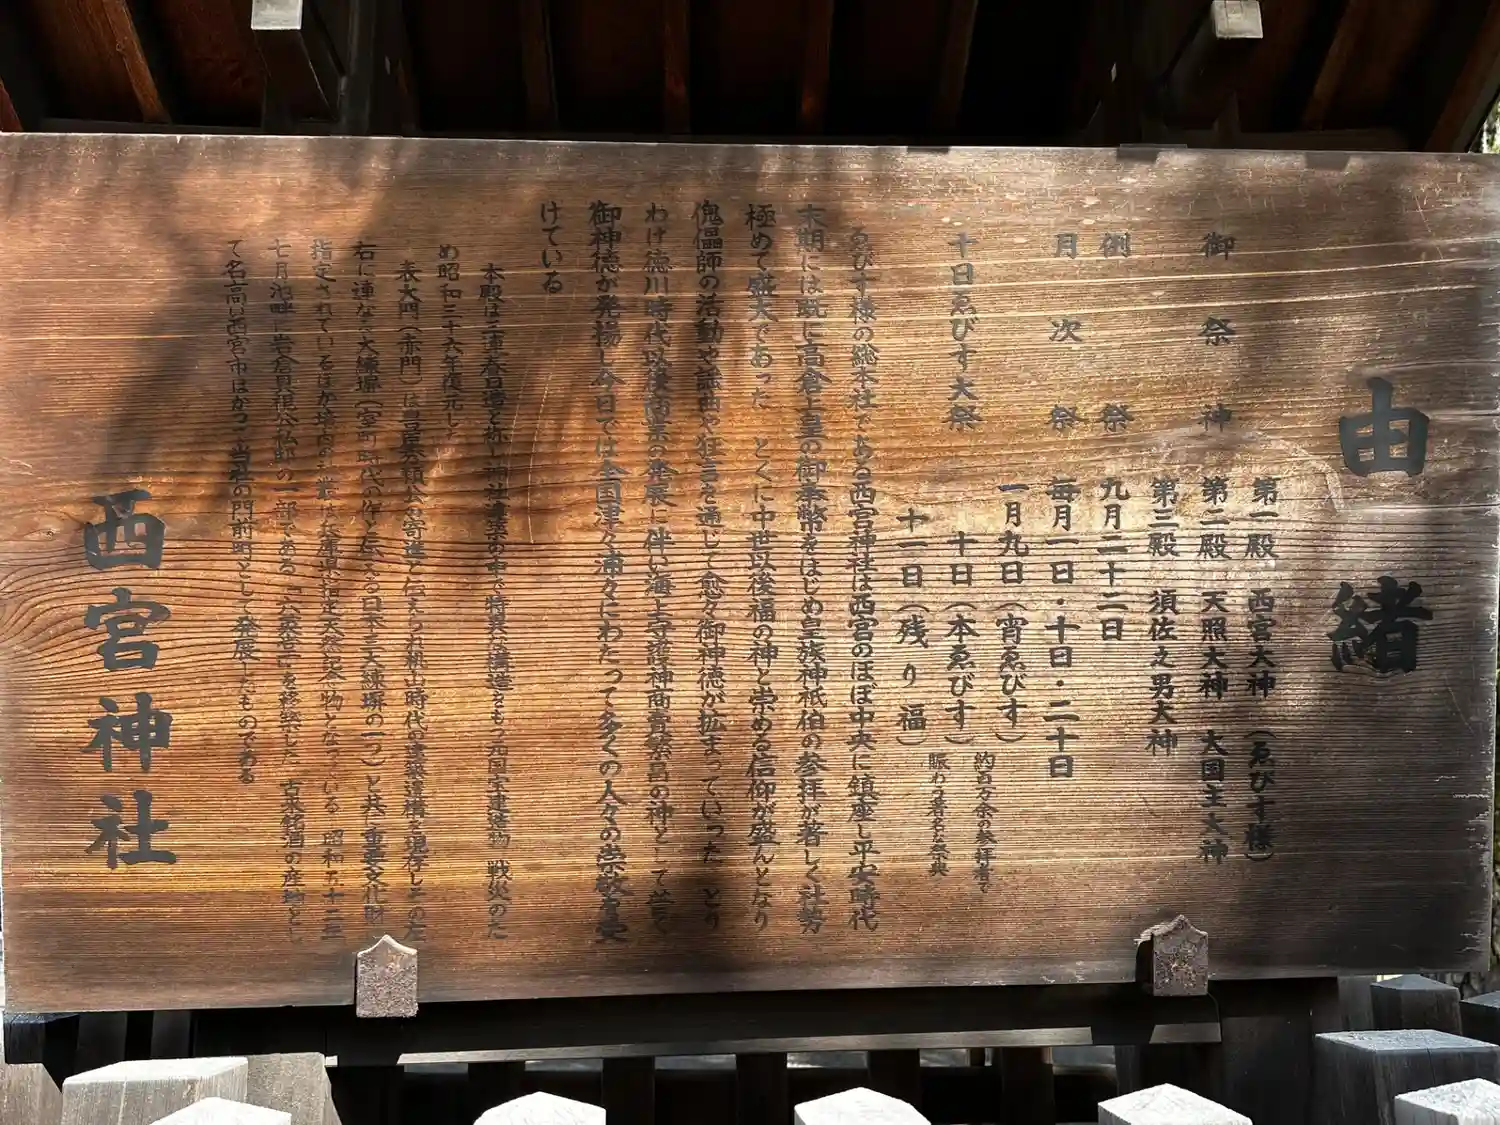 由緒
御祭神 第一殿 西宮大神(ゑびす様)
第二殿 天照大神 大国主大神
第三殿 須佐之男大神
例祭 九月二十二日
月次祭 毎月一日・十日・二十日
十日ゑびす大祭 一月九日(宵ゑびす)
十日(本ゑびす)
十一日(残り福)
約百万余の参拝者で
賑わう著名な祭典
ゑびす様の総本社である西宮神社は西宮のほぼ中央に鎮座し平安時代
末期には既に高倉上皇の御奉幣をはじめ皇族神祇伯の参拝が著しく社勢
極めて盛大であった とくに中世以後福の神と崇める信仰が盛んとなり
傀儡師の活動や謡曲や狂言を通じて愈々御神徳が拡まっていった とり
わけ徳川時代以後商業の発展に伴い海上守護神商売繁昌の神として篤く
御神徳が発揚し今日では全国津々浦々にわたって多くの人々の崇敬を受
けている
本殿は三連春日造と称し神社建築の中で特異な構造をもつ元国宝建造物 戦災のた
め昭和三十六年復元した
表大門(赤門)は豊臣秀頼公の寄進と伝えられ桃山時代の建築遺構を現存しその左
右に連なる大練塀(室町時代の作と伝える日本三大練塀の一つ)と共に重要文化財に
指定されているほか境内の社叢は兵庫県指定天然記念物となっている 昭和五十二年
七月池畔に岩倉具視公仏邸の一部である「六英堂」を移築した 古来銘酒の産地とし
て名高い西宮市はかつて当社の門前町として発展したものである
西宮神社